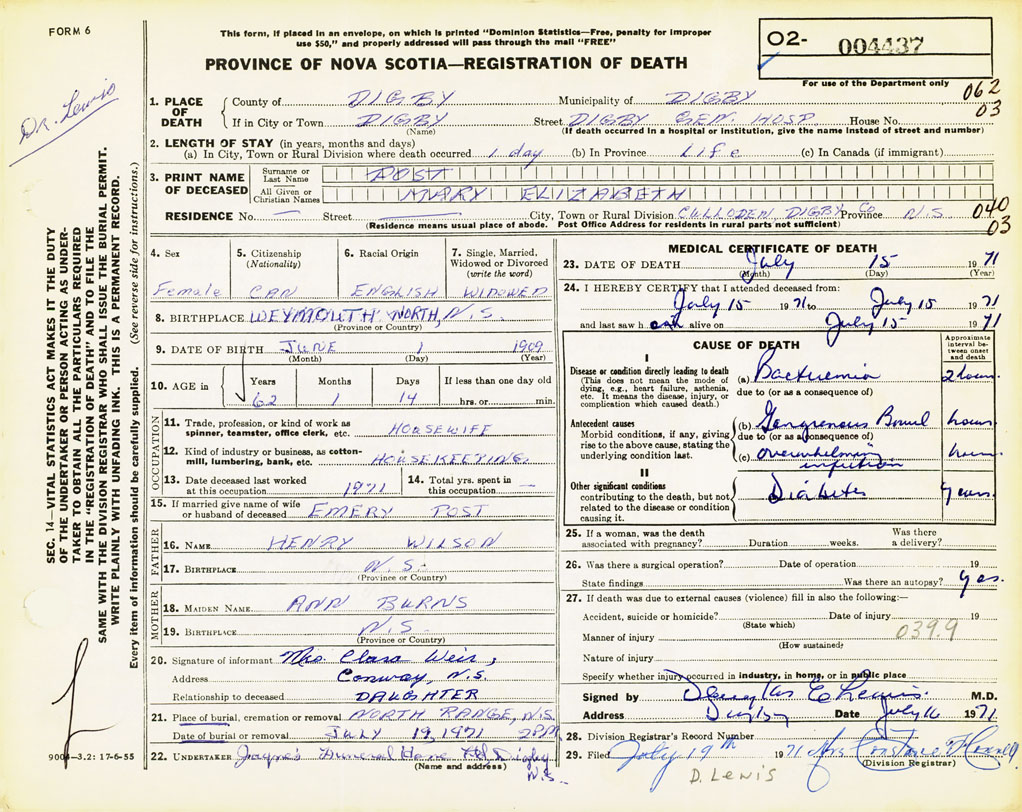 FORM 6
This form, if placed in an envelope, on which is printed "Dominion Statistics—Free, penalty for improper
use $50," and properly addressed will pass through the mail "FREE"
PROVINCE OF NOVA SCOTIA—REGISTRATION OF DEATH
O2- 004437
For use of the Department only
062
03
Dr. Lewis
SEC. 14—VITAL STATISTICS ACT MAKES IT THE DUTY
OF THE UNDERTAKER OR PERSON ACTING AS UNDER-
TAKER TO OBTAIN ALL THE PARTICULARS REQUIRED
IN THE "REGISTRATION OF DEATH" AND TO FILE THE
SAME WITH THE DIVISION REGISTRAR WHO SHALL ISSUE THE BURIAL PERMIT.
WRITE PLAINLY WITH UNFADING INK. THIS IS A PERMANENT RECORD.
Every item of information should be carefully supplied. (See reverse side for instructions.)
1. PLACE OF DEATH
County of DIGBY Municipality of DIGBY
If in City or Town DIGBY Street DIGBY GEN. HOSP House No.
(Name) (If death occurred in a hospital or institution, give the name instead of street and number)
2. LENGTH OF STAY (in years, months and days)
(a) In City, Town or Rural Division where death occurred 1 day (b) In Province Life (c) In Canada (if immigrant)
3. PRINT NAME OF DECEASED
Surname or Last Name POST
All Given or Christian Names MARY ELIZABETH
RESIDENCE No. — Street — City, Town or Rural Division CULLODEN, DIGBY Co Province N.S. 040
03
(Residence means usual place of abode. Post Office Address for residents in rural parts not sufficient)
4. Sex 5. Citizenship (Nationality) 6. Racial Origin 7. Single, Married, Widowed or Divorced (write the word)
Female CAN ENGLISH WIDOWED
8. BIRTHPLACE WEYMOUTH NORTH, N.S.
(Province or Country)
9. DATE OF BIRTH JUNE 1 1909
(Month) (Day) (Year)
10. AGE in Years Months Days If less than one day old
62 1 14 hrs. or min.
OCCUPATION
11. Trade, profession, or kind of work as spinner, teamster, office clerk, etc. HOUSEWIFE
12. Kind of industry or business, as cotton-mill, lumbering, bank, etc. HOUSEKEEPING
13. Date deceased last worked at this occupation 1971 14. Total yrs. spent in this occupation
15. If married give name of wife or husband of deceased EMERY POST
FATHER
16. NAME HENRY WILSON
17. BIRTHPLACE N.S.
(Province or Country)
MOTHER
18. MAIDEN NAME ANN BURNS
19. BIRTHPLACE N.S.
(Province or Country)
20. Signature of informant Mrs. Clara Weir,
Address Conway, N.S.
Relationship to deceased DAUGHTER
21. Place of burial, cremation or removal NORTH RANGE, N.S.
Date of burial or removal JULY 19, 1971 2PM
22. UNDERTAKER Jayne's Funeral Home Ltd Digby
(Name and address) N.S.
9004-3.2: 17-6-55
MEDICAL CERTIFICATE OF DEATH
23. DATE OF DEATH July 15 1971
(Month) (Day) (Year)
24. I HEREBY CERTIFY that I attended deceased from:
July 15 1971 to July 15 1971
and last saw h er alive on July 15 1971
CAUSE OF DEATH Approximate interval between onset and death
I
Disease or condition directly leading to death (a) Bacteremia 2 hours
(This does not mean the mode of dying, e.g., heart failure, asthenia, etc. It means the disease, injury, or complication which caused death.) due to (or as a consequence of)
Antecedent causes (b) Gangrenous Bowel hours
Morbid conditions, if any, giving rise to the above cause, stating the underlying condition last. due to (or as a consequence of)
(c) overwhelming infection hours
II
Other significant conditions Diabetes years
contributing to the death, but not related to the disease or condition causing it.
25. If a woman, was the death associated with pregnancy? Duration weeks. Was there a delivery?
26. Was there a surgical operation? Date of operation 19
State findings Was there an autopsy? yes.
27. If death was due to external causes (violence) fill in also the following:—
Accident, suicide or homicide? Date of injury 19
(State which)
Manner of injury 039.9
(How sustained)
Nature of injury
Specify whether injury occurred in industry, in home, or in public place
Signed by Douglas E Lewis M.D.
Address Digby Date July 16 1971
28. Division Registrar's Record Number
29. Filed July 19th 1971 Mrs Constance
(Division Registrar)
D. LEWIS